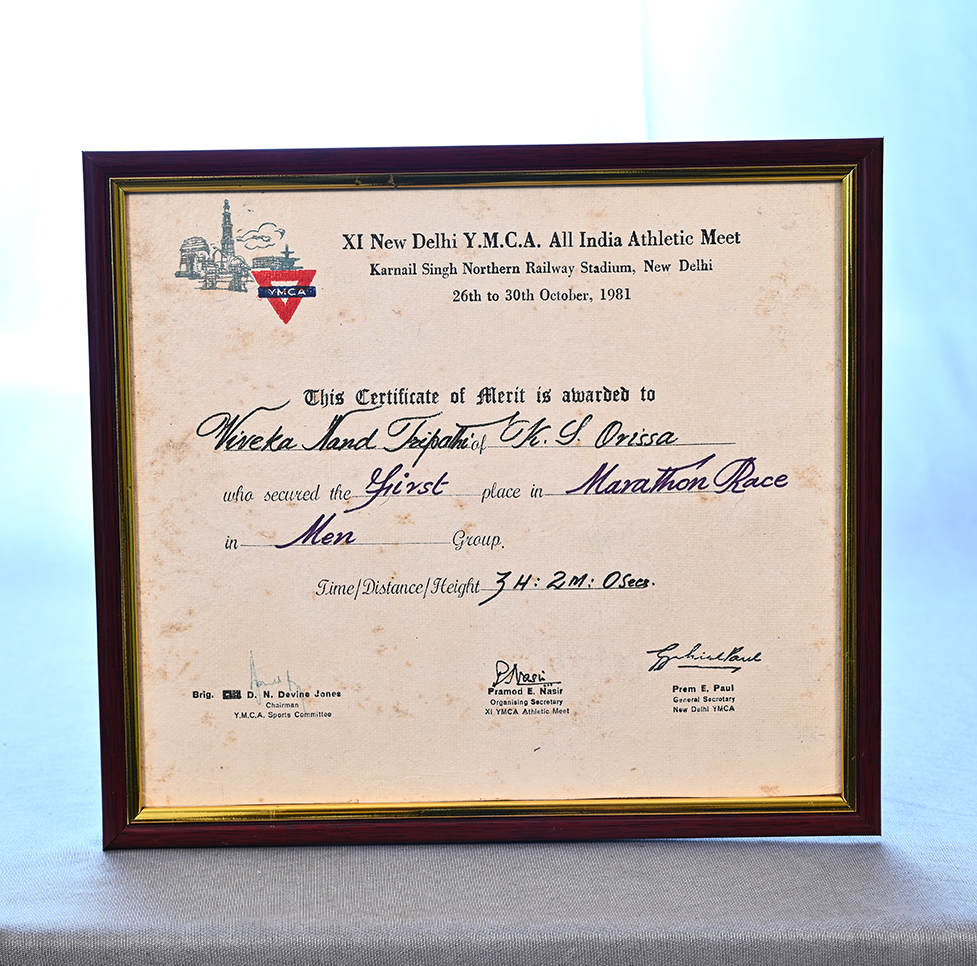 XI New Delhi Y.M.C.A. All India Athletic Meet
Karnail Singh Northern Railway Stadium, New Delhi
26th to 30th October, 1981
YMCA
This Certificate of Merit is awarded to
Viveka Nand Tripathi of K. S. Orissa
who secured the First place in Marathon Race
in Men Group.
Time/Distance/Height 3 H: 2 M: 0 Secs.
Brig. D. N. Devine Jones
Chairman
Y.M.C.A. Sports Committee
PNasir
Pramod E. Nasir
Organising Secretary
XI YMCA Athletic Meet
Prem E. Paul
General Secretary
New Delhi YMCA